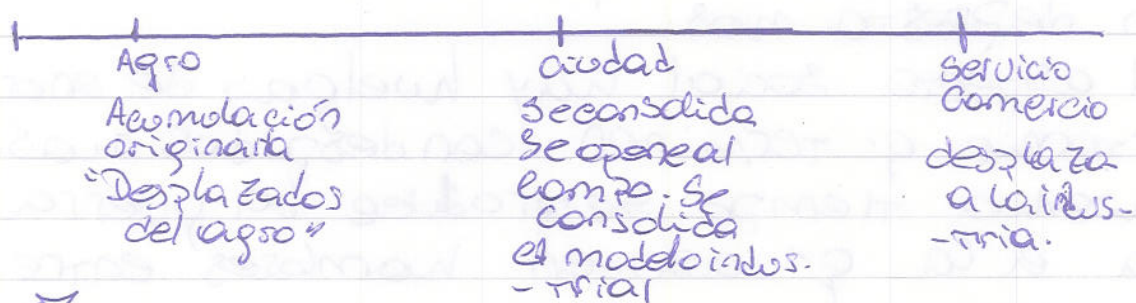 Agro
Acumulación
originaria
"Desplazados
del agro"
ciudad
se consolida
Se opone al
campo. Se
consolida
el modelo indus-
-trial
Servicio
Comercio
desplaza
a la indus-
-tria.